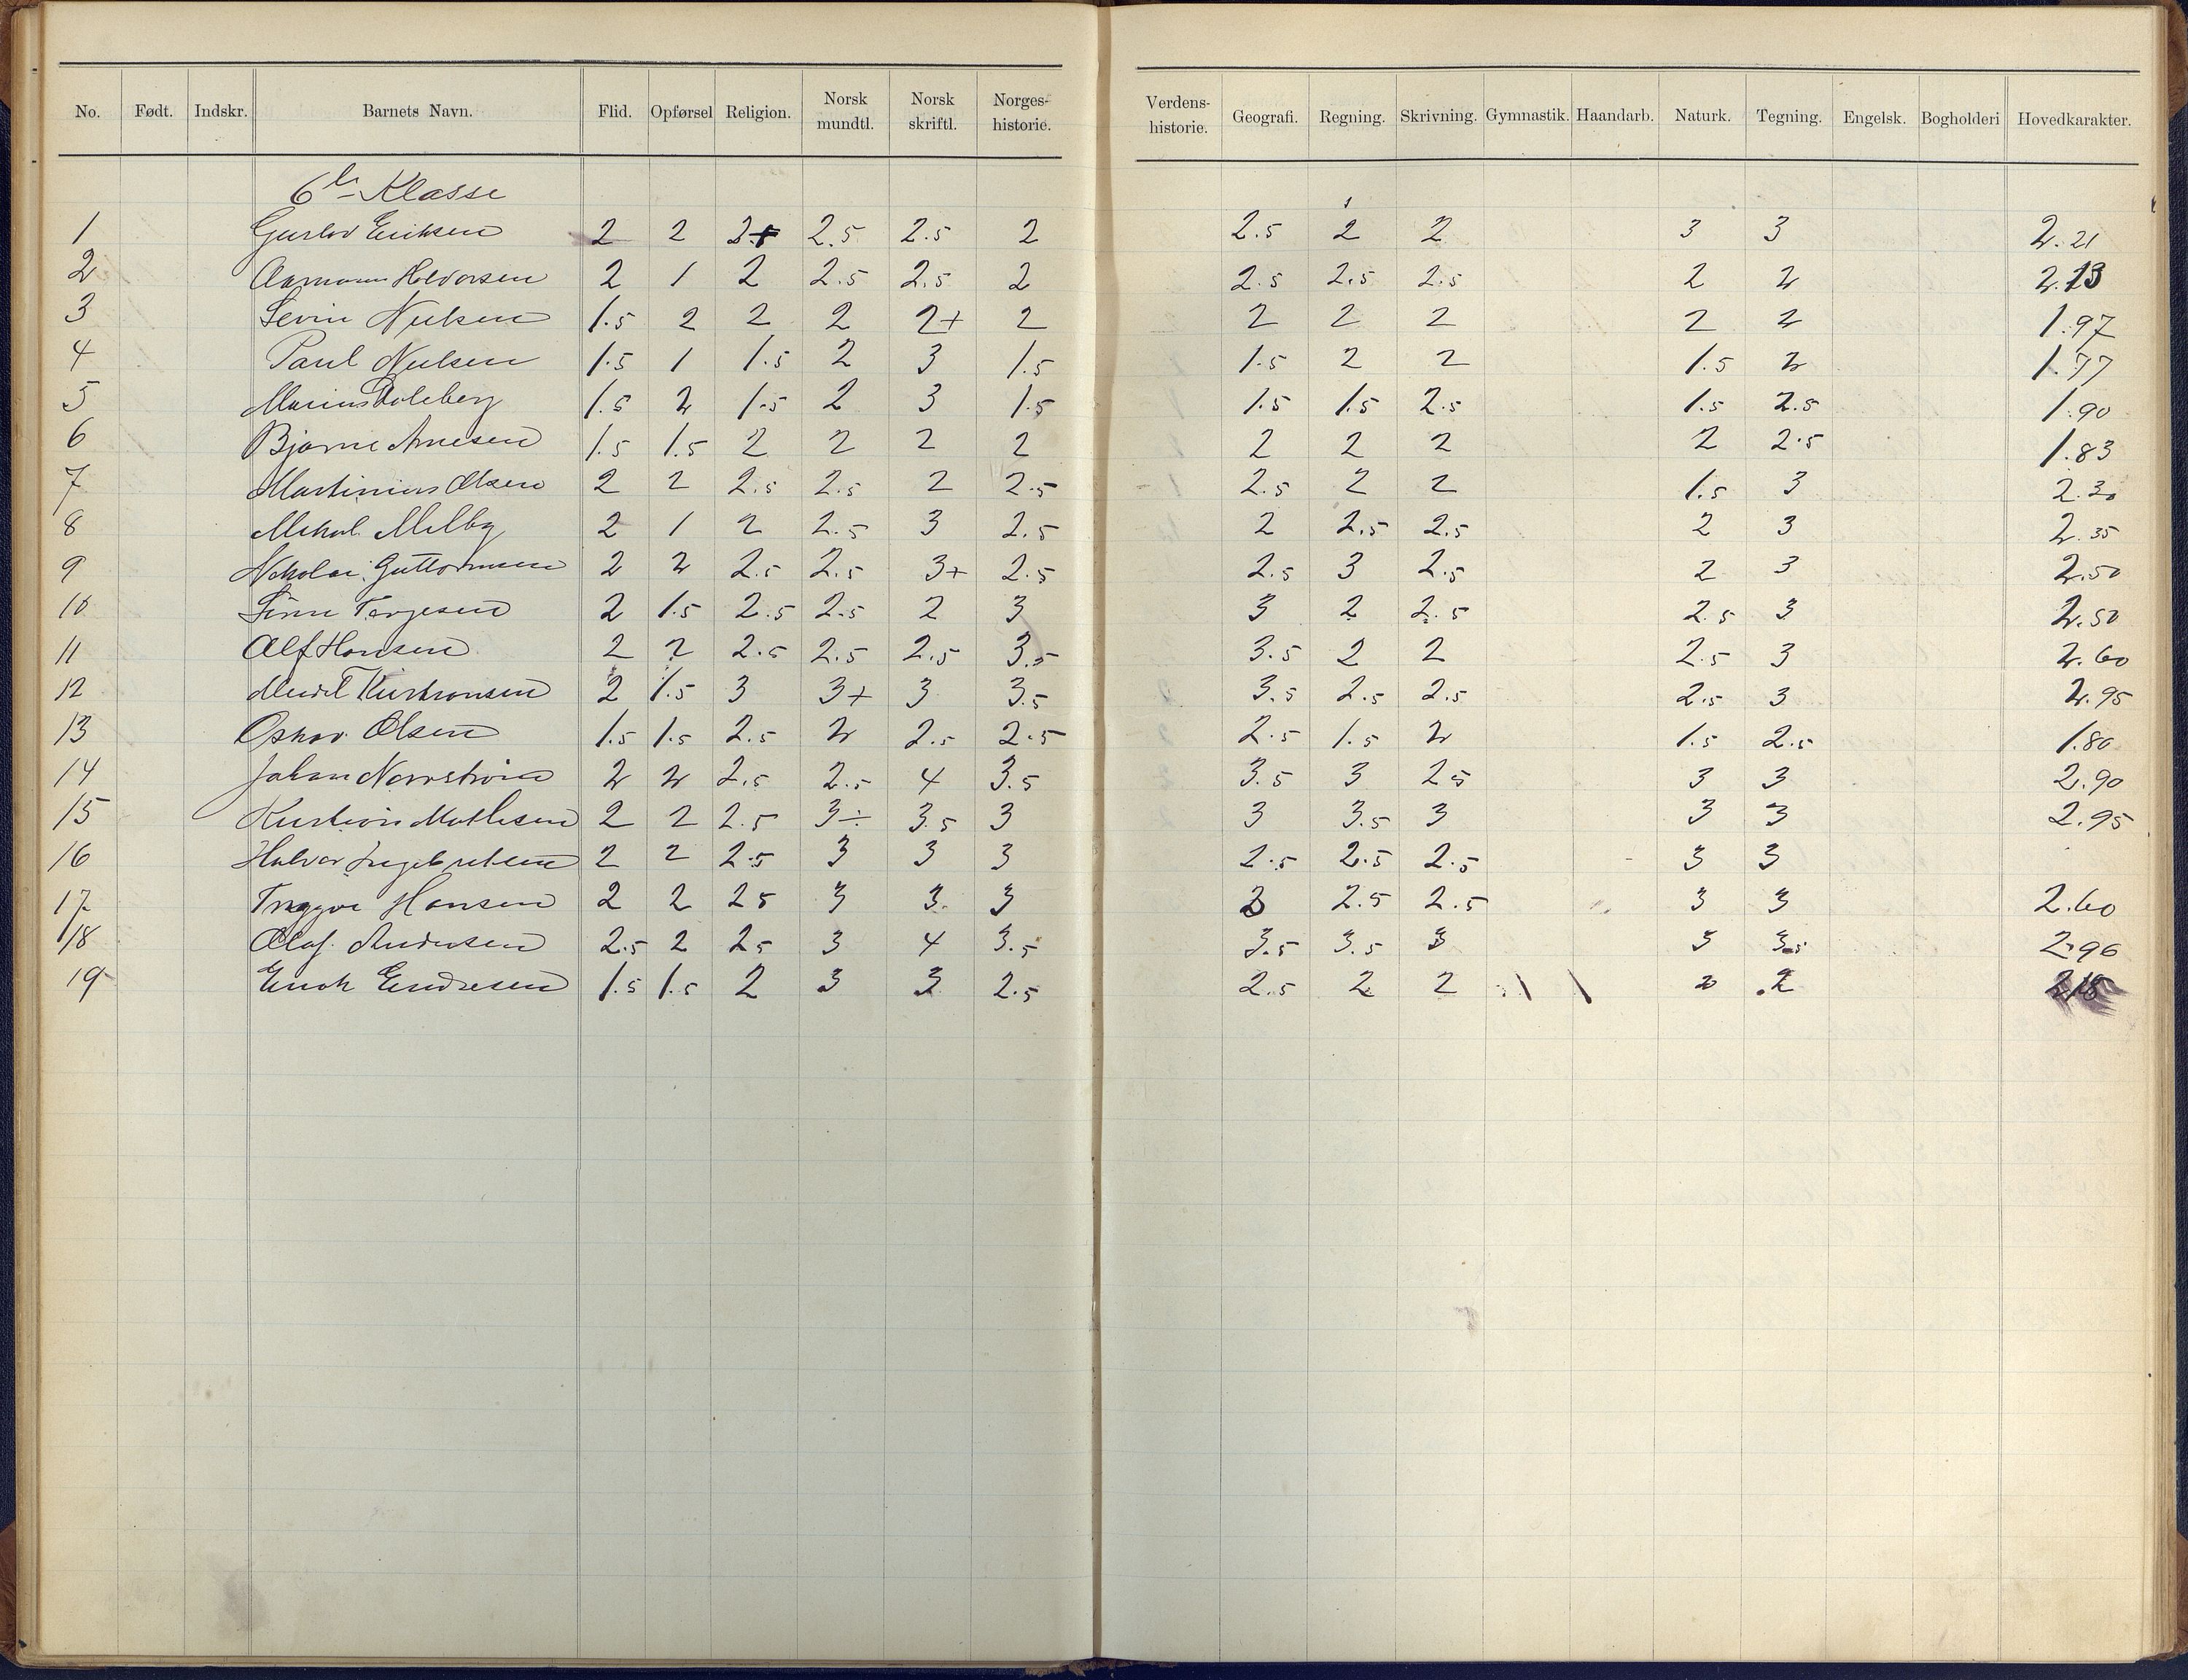 No. Født. Indskr. Barnets Navn. Flid. Opførsel Religion. Norsk mundtl. Norsk skriftl. Norges-historie. Verdens-historie. Geografi. Regning. Skrivning. Gymnastik. Haandarb. Naturk. Tegning. Engelsk. Bogholderi Hovedkarakter.
6te Klasse
1 Gustav Eriksen 2 2 2.5 2.5 2 2.5 2 2 3 3 2.21
2 Aamann Halvorsen 2 1 2 2.5 2.5 2 2.5 2.5 2.5 2 2 2.13
3 Sevin Nielsen 1.5 2 2 2 2+ 2 2 2 2 2 2 1.97
4 Paul Nielsen 1.5 1 1.5 2 3 1.5 1.5 2 2 1.5 2 1.77
5 Marius Doleberg 1.5 2 1.5 2 3 1.5 1.5 1.5 2.5 1.5 2.5 1.90
6 Bjarne Arnesen 1.5 1.5 2 2 2 2 2 2 2 2 2.5 1.83
7 Martinius Olsen 2 2 2.5 2.5 2 2.5 2.5 2 2 1.5 3 2.30
8 Mikal Melby 2 1 2 2.5 3 2.5 2 2.5 2.5 2 3 2.35
9 Nikolai Guttormsen 2 2 2.5 2.5 3+ 2.5 2.5 3 2.5 2 3 2.50
10 Terjesen 2 1.5 2.5 2.5 2 3 3 2 2.5 2.5 3 2.50
11 Alf Hansen 2 2 2.5 2.5 2.5 3.5 3.5 2 2 2.5 3 2.60
12 Kristiansen 2 1.5 3 3+ 3 3.5 3.5 2.5 2.5 2.5 3 2.95
13 Oskar Olsen 1.5 1.5 2.5 2 2.5 2.5 2.5 1.5 2 1.5 2.5 1.80
14 Johan Norrström 2 2 2.5 2.5 4 3.5 3.5 3 2.5 3 3 2.90
15 Kristian Mathisen 2 2 2.5 3÷ 3.5 3 3 3.5 3 3 3 2.95
16 Halvor Ingebretsen 2 2 2.5 3 3 3 2.5 2.5 2.5 3 3
17 Tryggve Hansen 2 2 25 3 3. 3 3 2.5 2.5 3 3 2.60
18 Olaf Andersen 2.5 2 25 3 4 3.5 3.5 3.5 3 3 3.5 2.96
19 Enok Endresen 1.5 1.5 2 3 3 2.5 2.5 2 2 2 2 2.18